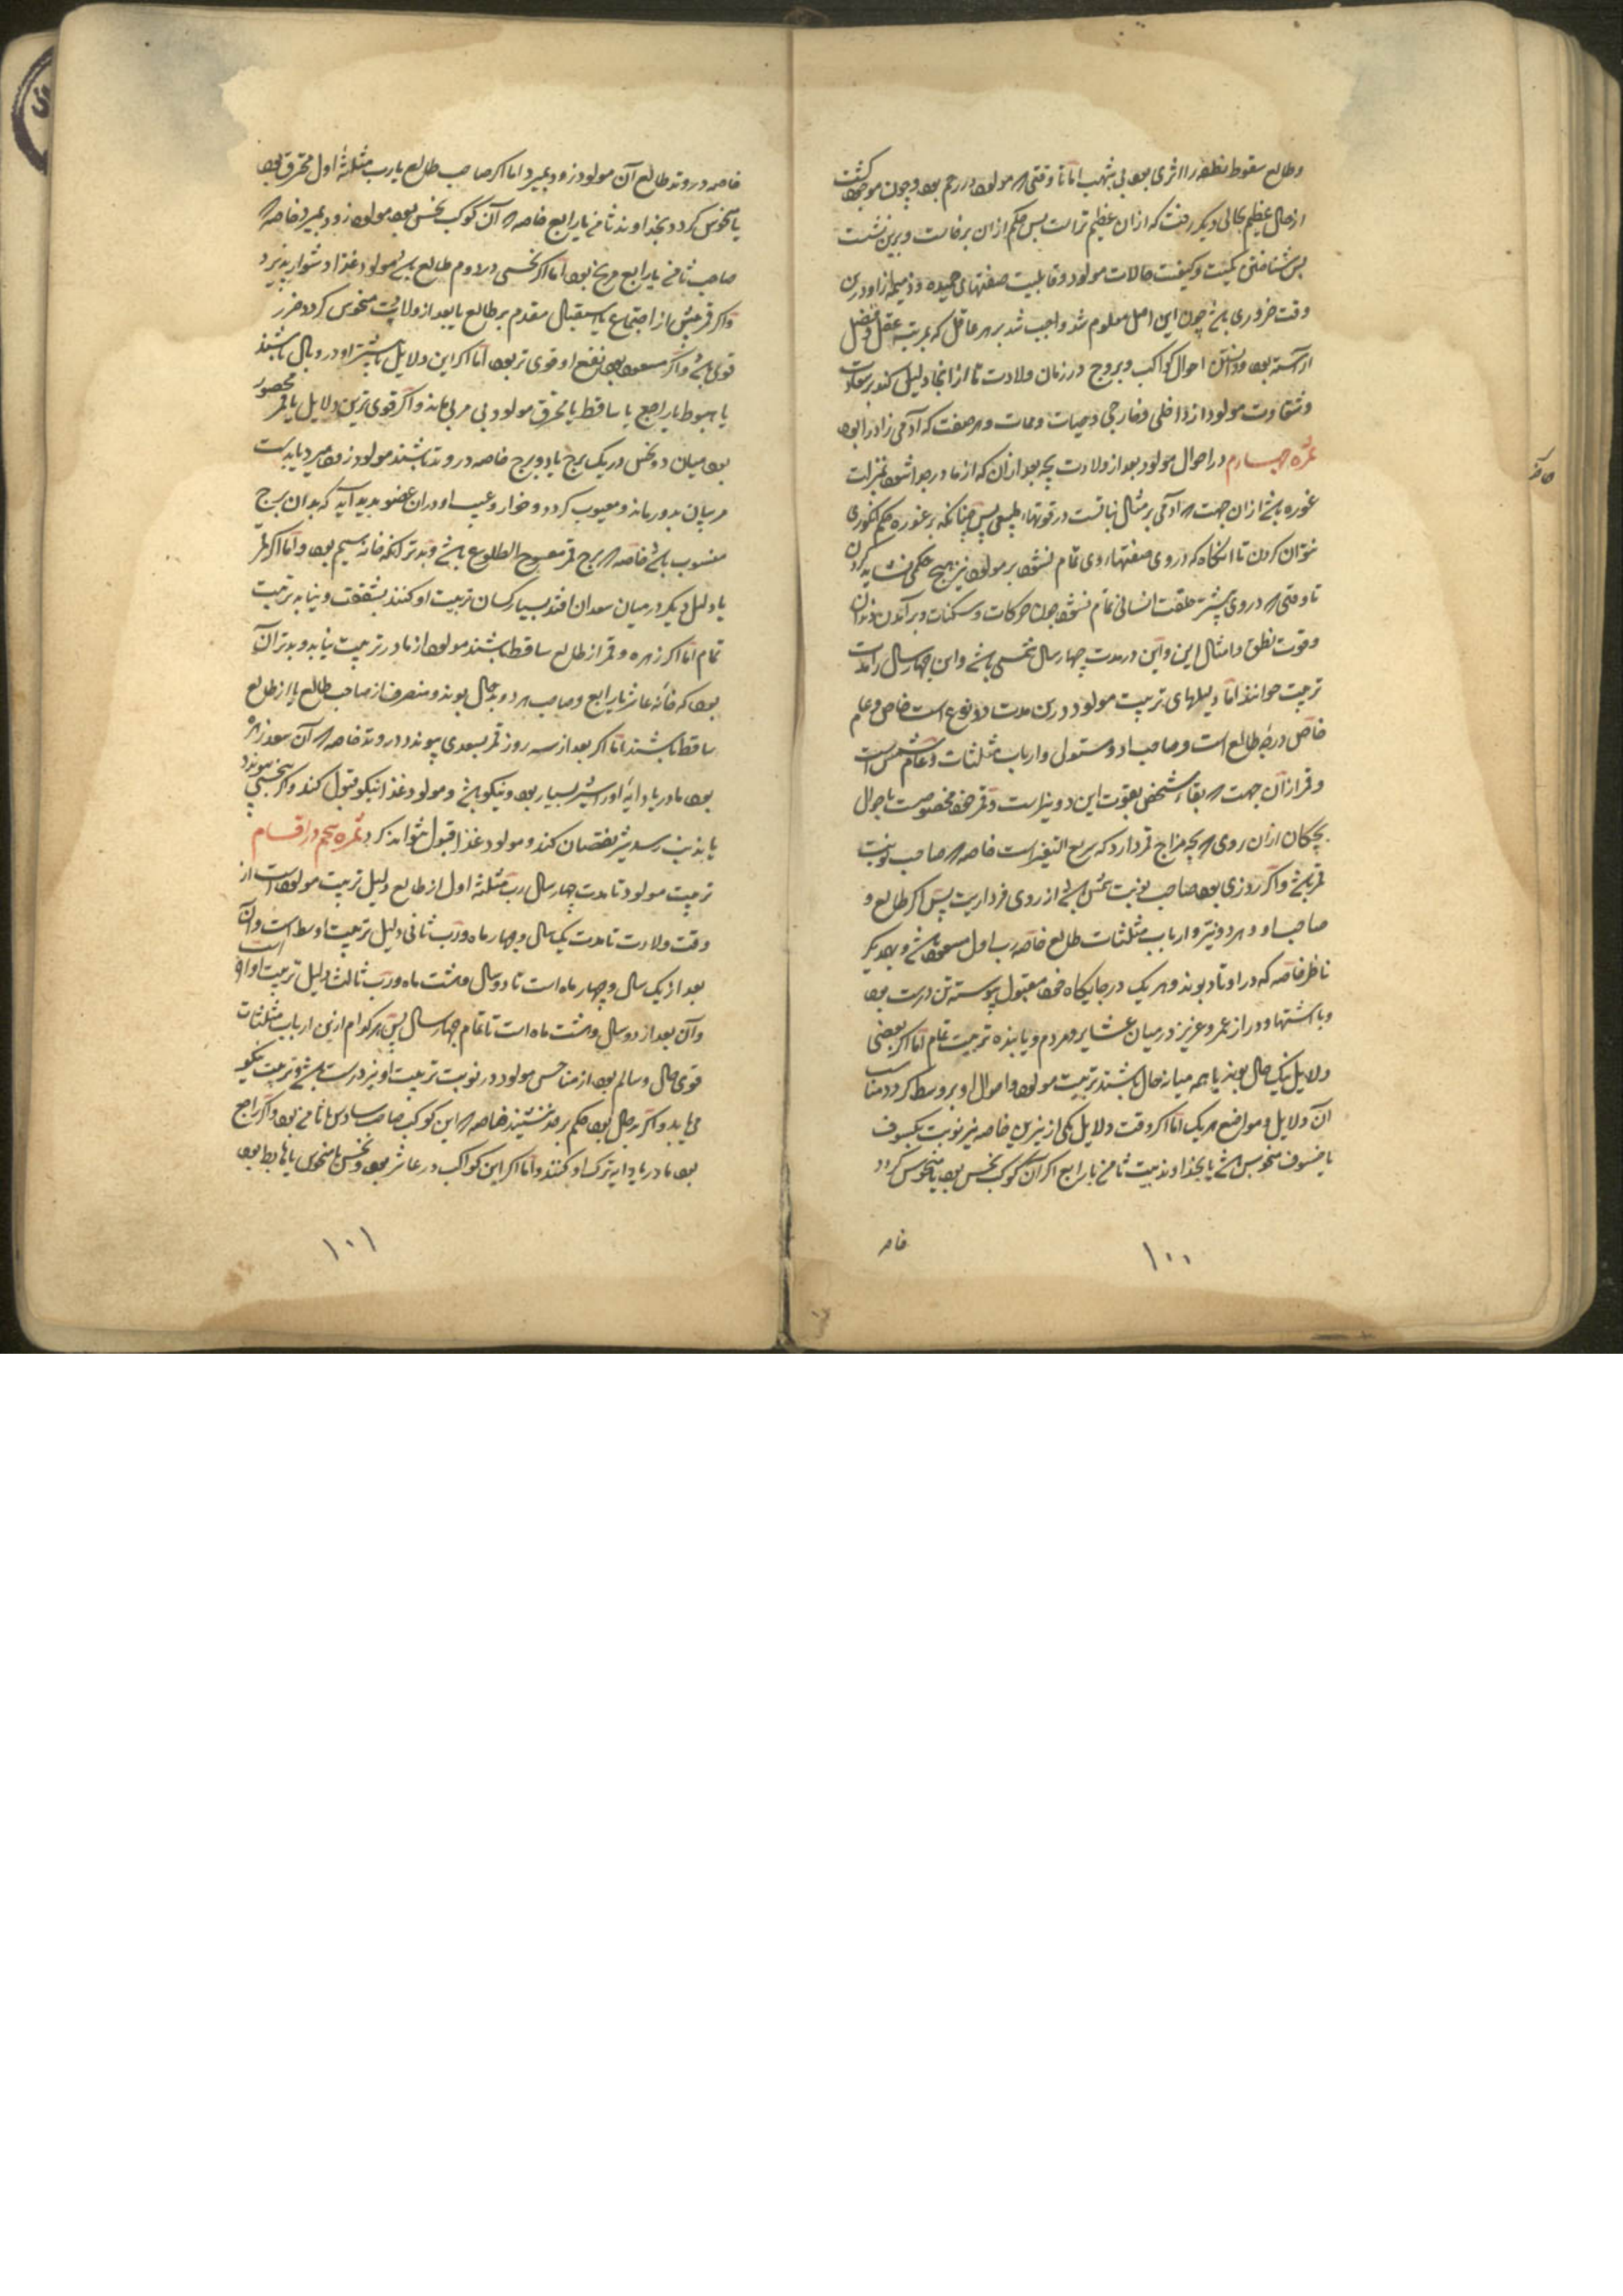 وطالع سقوط نطفه را اثری بود بی شبهت اما تا وقتی که مولود در رحم بود و چون موجود گشت
از حال عظیم بحالی دیکر رفت که از ان عظیم تر است پس حکم از ان برخاست و برین نشست
پس شناختن کمیت و کیفیت حالات مولود و قابلیت صفتهای حمیده و ذمیمه از او درین
وقت ضروری باشد چون این اصل معلوم شد واجب شد بر هر عاقل که بمرتبه عقل و فضل
اراسته بود و دانستن احوال کواکب و بروج در زمان ولادت تا از انجا دلیل کند بر سعادت
و شقاوت مولود از داخلی و خارجی و حیات و ممات و هر صفت که آدمی زاد را بود
ثمره چهارم در احوال مولود بعد از ولادت بچه بعد از ان که از مادر جدا شود بمنزلت
غوره باشد از ان جهت که آدمی بر مثال نباتست در قوتهاء طبیعی پس چنانکه بر غوره حکم انکوری
نتوان کردن تا انکاه که در وی صفتهاء وی تمام نشود بر مولود نیز هیچ حکمی نشاید کردن
تا وقتی که در وی بیشتر خلقت انسانی تمام نشود چون حرکات و سکنات و برآمدن دندان
وقوت نطق و امثال این و این در مدت چهار سال شمسی باشد و این چهار سال را مدت
تربیت خوانند اما دلیلهای تربیت مولود درین مدت دو نوع است خاص و عام
خاص درجۀ طالع است و صاحب او و مستولی و ارباب مثلثات و عام شمس است
و قمر از آن جهت که بقاء شخص بقوت این دو نیر است و قمر خود مخصوصست باحوال
بچکان از ان روی که بچه مزاج قمر دارد که سریع التغیر است خاصه که صاحب نوبت
قمر باشد و اکر روزی بود صاحب نوبت شمس باشد از روی فرداریت پس اکر طالع و
صاحب او و هر دو نیر و ارباب مثلثات طالع خاصه رب اول مسعود باشد و بیکدیکر
ناظر خاصه که در اوتاد بوند و هر یک در جایکاه خود مقبول پیوسته تن درست بود
و با اشتها و دراز عمر و عزیز در میان عشایر و مردم و یابنده تربیت تمام اما اکر بعضی
دلایل نیک حال بوند یا همه میانه حال باشند تربیت مولود و احوال او بر وسط کردد مناسب
آن دلایل و مواضع هر یک اما اکر وقت دلایل یکی از نیرین خاصه نیر نوبت بکسوف
یا خسوف منحوس باشد یا بخداوند بیت ثامن یا رابع اکر آن کوکب نحس بود یا منحوس کردد
خاصه
١٠٠
خاصه در وتد طالع آن مولود زود بمیرد اما اکر صاحب طالع یا رب مثلثۀ اول محترق بود
یا منحوس کردد بخداوند ثامن یا رابع خاصه که آن کوکب نحس بود مولود زود بمیرد خاصه که
صاحب ثامن یا رابع مریخ بود اما اکر نحسی در دوم طالع باشد مولود غذا دشوار پذیرد
و اکر قمر پیش از اجتماع یا استقبال مقدم بر طالع یا بعد از ولادت منحوس کردد ضرر
قوی باشد و اکر مسعود بود نفع او قوی تر بود اما اکر این دلایل یا بیشتر او در وبال باشند
یا هبوط یا راجع یا ساقط یا محترق مولود بی مربی ماند و اکر قوی ترین دلایل یا قمر محصور
بود میان دو نحس در یک برج یا دو برج خاصه در وتد باشند مولود زود میرد یا بدست
مربیان بد درماند و معیوب کردد و خوار و عیب او در ان عضو پدید آید که بدان برج
منسوب باشد خاصه که برج قمر معوج الطلوع باشد و بدتر انکه خانه سیم بود و اما اکر قمر
یا دلیل دیکر در میان سعدان افتد بسیار کسان تربیت او کنند بشفقت و نیابد تربیت
تمام اما اکر زهره و قمر از طالع ساقط باشند مولود از مادر تربیت نیابد و بدتر آن
بود که خانۀ عاشر یا رابع و صاحب هر دو بدحال بوند و منصرف از صاحب طالع یا از طالع
ساقط باشند اما اکر بعد از سه روز قمر بسعدی پیوندد در وتد خاصه که آن سعد زهره
بود مادر یا دایۀ او را شیر بسیار بود و نیکو باشد و مولود غذا نیکو قبول کند و اکر بنحسی پیوندد
یا بذنب رسد شیر نقصان کند و مولود غذا قبول نتواند کرد ثمره پنجم در اقسام
تربیت مولود تا مدت چهار سال رب مثلثه اول از طالع دلیل تربیت مولود است از
وقت ولادت تا مدت یک سال و چهار ماه و رب ثانی دلیل تربیت اوسط است و آن
بعد از یک سال و چهار ماه است تا دو سال و هشت ماه و رب ثالث دلیل تربیت اواخر است
و آن بعد از دو سال و هشت ماه است تا تمام چهار سال پس هر کدام ازین ارباب مثلثات
قوی حال و سالم بود از مناحس مولود در نوبت تربیت او تن درست باشد و تربیت نیکو
می یابد و اکر بدحال بود حکم بر ضد خاصه که این کوکب صاحب سادس یا ثامن بود و اکر راجع
بود مادر یا دایه ترک او کنند و اما اکر این کواکب در عاشر بود و نحس یا منحوس یا هابط بود
١٠١